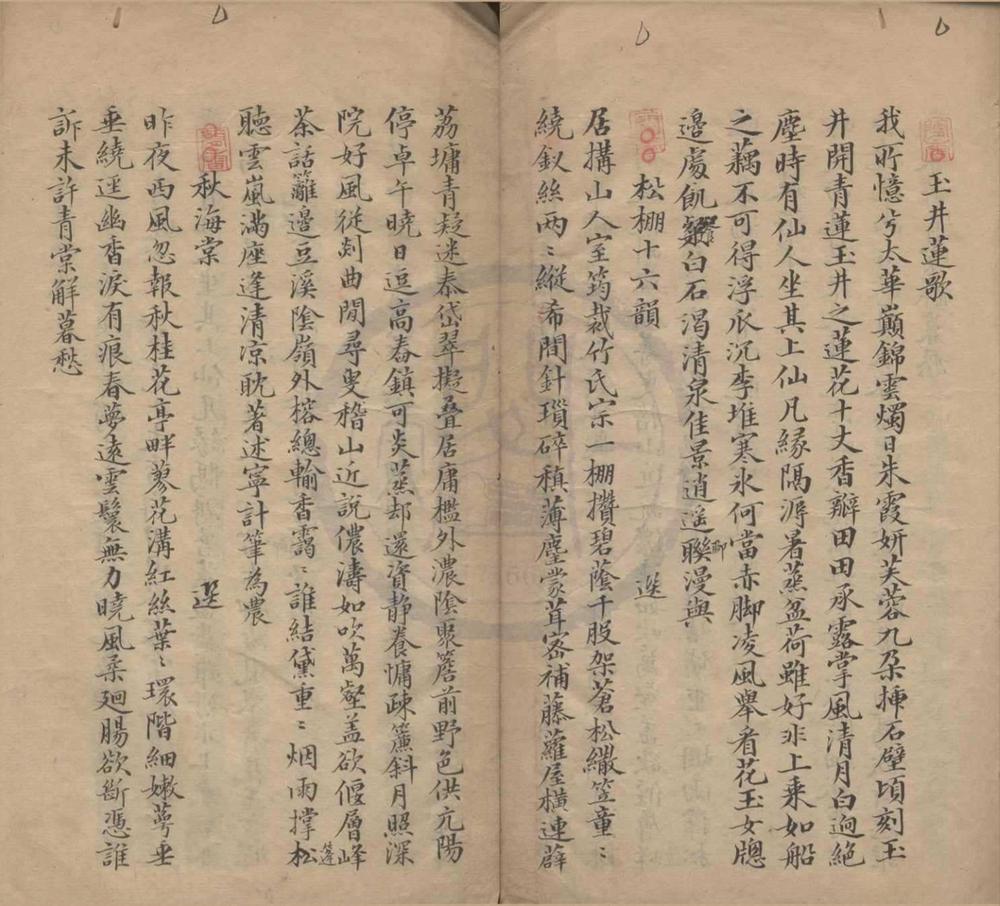 玉井蓮歌
我所憶兮太華巔錦雲燭日朱霞妍芙蓉九朶揷石壁頃刻玉
井開青蓮玉井之蓮花十丈香瓣田田承露掌風清月白逈絶
塵時有仙人坐其上仙凡緣隔溽暑蒸盆荷雖好非上乘如船
之藕不可得浮瓜沉李堆寒氷何當赤脚凌風舉看花玉女牕
邊處飢白石渴清泉佳景逍遥聊漫與
松棚十六韻 选
居搆山人室筠裁竹氏宗一棚攢碧蔭千股架蒼松繖笠童〻
繞釵絲兩〻縱希間針瑣碎稹薄塵蒙茸密補藤蘿屋横連薜
荔墉青疑迷泰岱翠擬叠居庸檻外濃陰聚簷前野色供亢陽
停卓午曉日逗高舂鎮可炎蒸却還資静養慵疎簾斜月照深
院好風從剡曲閒尋叟稽山近説儂濤如吹萬壑盖欲偃層峰
茶話籬邊豆溪陰嶺外榕總輸香靄〻誰結黛重〻烟雨撑松篷
聽雲嵐滿座逢清凉耽著述寧計筆為農
秋海棠 选
昨夜西風忽報秋桂花亭畔蓼花溝紅絲葉〻環階細嫩萼垂
垂繞逕幽香淚有痕春夢遠雲鬟無力曉風柔廻腸欲斷憑誰
訴未許青棠解暮愁